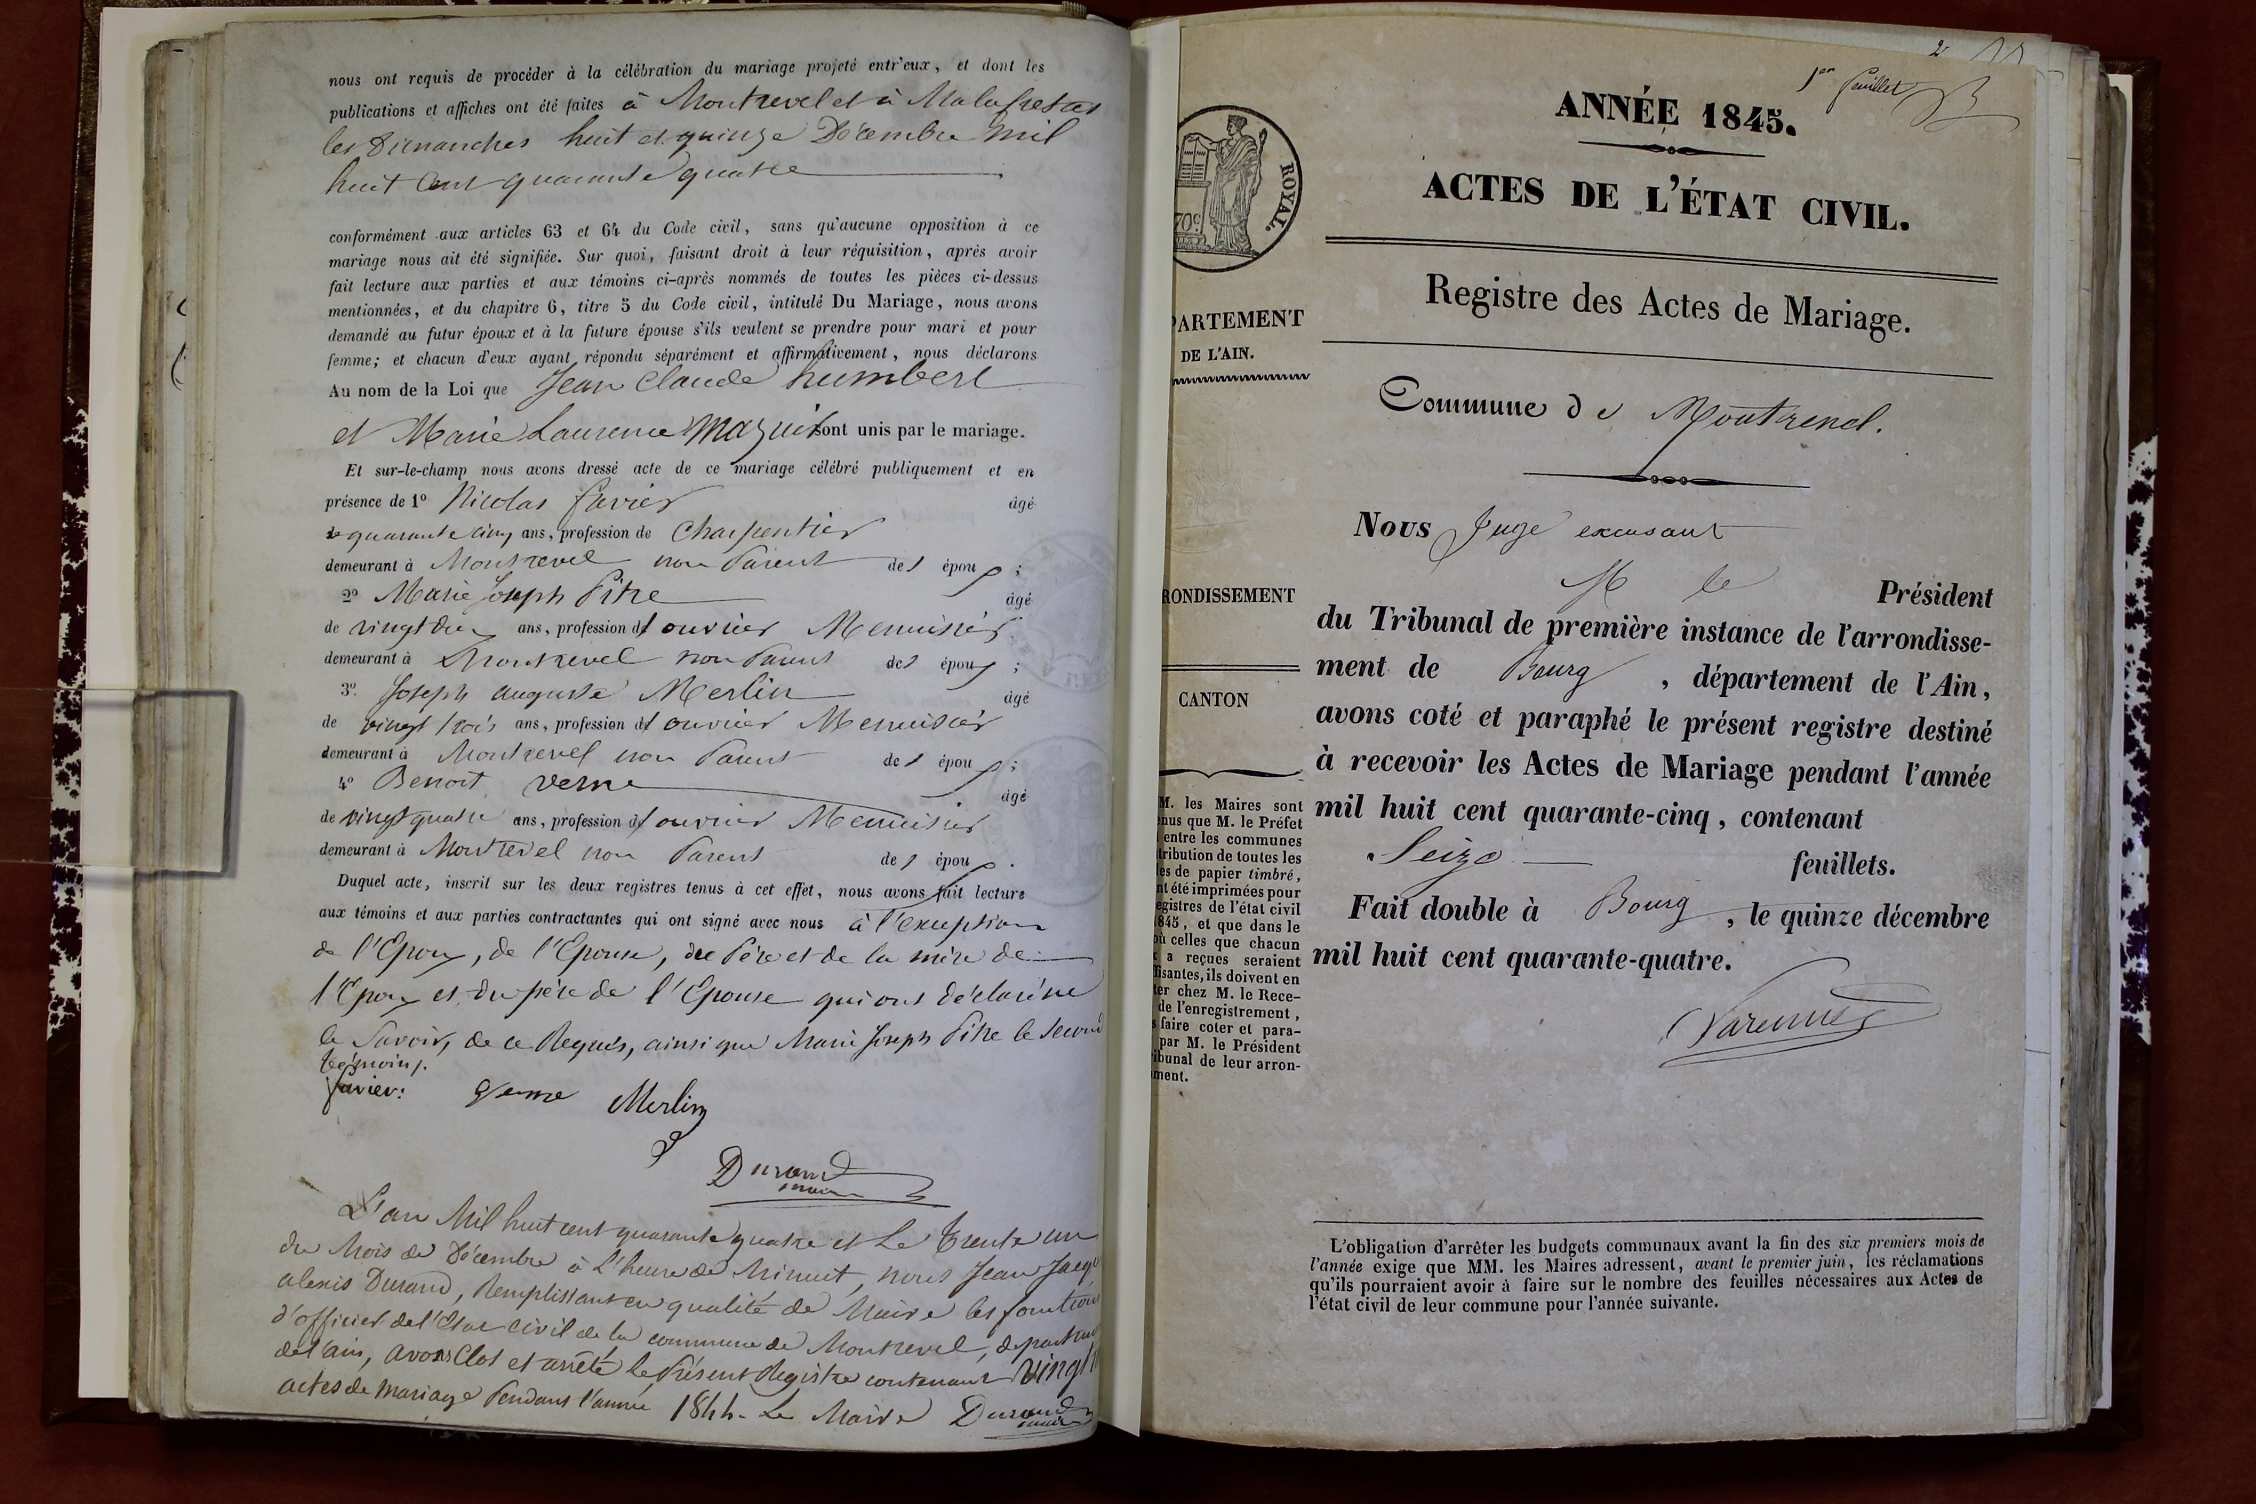 nous ont requis de procéder à la célébration du mariage projeté entr'eux, et dont les
publications et affiches ont été faites à Montrevel et à Malafretaz
les Dimanches huit et quinze Décembre mil
huit Cent quarante quatre
conformément aux articles 63 et 64 du Code civil, sans qu'aucune opposition à ce
mariage nous ait été signifiée. Sur quoi, faisant droit à leur réquisition, après avoir
fait lecture aux parties et aux témoins ci-après nommés de toutes les pièces ci-dessus
mentionnées, et du chapitre 6, titre 5 du Code civil, intitulé Du Mariage, nous avons
demandé au futur époux et à la future épouse s'ils veulent se prendre pour mari et pour
femme; et chacun d'eux ayant répondu séparément et affirmativement, nous déclarons
Au nom de la Loi que Jean Claude humbert
et Marie Laurence Mazuit sont unis par le mariage.
Et sur-le-champ nous avons dressé acte de ce mariage célébré publiquement et en
présence de 1º Nicolas favier âgé
de quarante cinq ans, profession de Charpentier
demeurant à Montrevel non Parent des époux ;
2º Marie Joseph Pitre âgé
de vingt deux ans, profession d'ouvrier Menuisier
demeurant à Montrevel non Parent des époux ;
3º. Joseph auguste Merlin âgé
de vingt trois ans, profession d'ouvrier Menuisier
demeurant à Montrevel non Parent des époux ;
4º Benoit Verne âgé
de vingt quatre ans, profession d'ouvrier Menuisier
demeurant à Montrevel non Parent des époux .
Duquel acte, inscrit sur les deux registres tenus à cet effet, nous avons fait lecture
aux témoins et aux parties contractantes qui ont signé avec nous à l'exception
de l'Epoux, de l'Epouse, du Père et de la mère de
l'Epoux et du père de l'Epouse qui ont déclaré ne
le Savoir, de ce Requis, ainsi que Marie Joseph Pitre le second
témoins.
favier: Verne Merlin
Durand
maire
L'an Mil huit cent quarante quatre et Le Trente un
du Mois de Décembre à L'heure de Minuit, nous Jean Jacqs
alexis Durand, Remplissant en qualité de Maire les fonctions
d'officier de l'Etat civil de la commune de Montrevel, departmt
de l'ain, avons Clos et arrêté le Présent Registre contenant vingt
actes de mariage Pendant l'année 1844. Le Maire Durand
maire
2
1er feuillet
ANNÉE 1845.
ACTES DE L'ÉTAT CIVIL.
ROYAL.
70c
Registre des Actes de Mariage.
PARTEMENT
DE L'AIN.
Commune de Montrevel.
Nous Juge excusant
M le Président
RONDISSEMENT
du Tribunal de première instance de l'arrondisse-
ment de Bourg , département de l'Ain,
CANTON
avons coté et paraphé le présent registre destiné
à recevoir les Actes de Mariage pendant l'année
mil huit cent quarante-cinq, contenant
Seize feuillets.
Fait double à Bourg , le quinze décembre
mil huit cent quarante-quatre.
Varenne
M. les Maires sont
enus que M. le Préfet
entre les communes
tribution de toutes les
les de papier timbré,
nt été imprimées pour
egistres de l'état civil
845, et que dans le
où celles que chacun
a reçues seraient
fisantes, ils doivent en
ter chez M. le Rece-
de l'enregistrement,
s faire coter et para-
par M. le Président
ibunal de leur arron-
ment.
L'obligation d'arrêter les budgets communaux avant la fin des six premiers mois de
l'année exige que MM. les Maires adressent, avant le premier juin, les réclamations
qu'ils pourraient avoir à faire sur le nombre des feuilles nécessaires aux Actes de
l'état civil de leur commune pour l'année suivante.